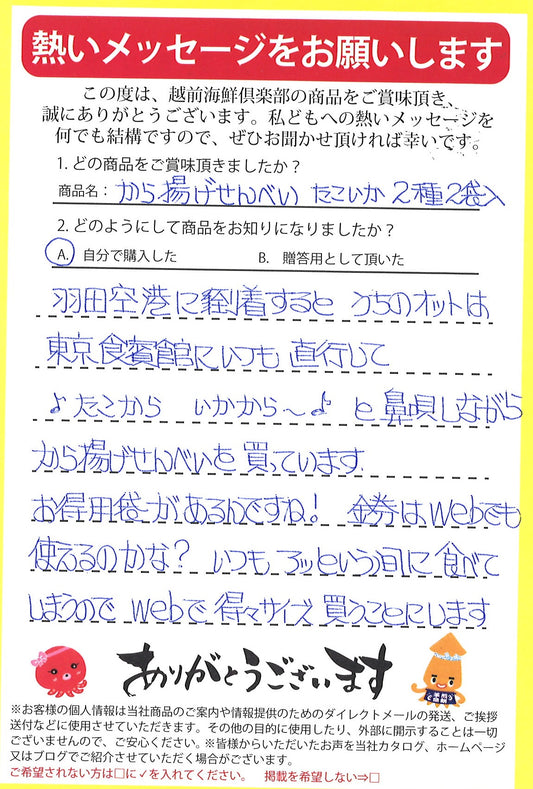 熱いメッセージをお願いします
この度は、越前海鮮倶楽部の商品をご賞味頂き、
誠にありがとうございます。私どもへの熱いメッセージを
何でも結構ですので、ぜひお聞かせ頂ければ幸いです。
1. どの商品をご賞味頂きましたか？
商品名： から揚げせんべい たこいか 2種2袋入
2. どのようにして商品をお知りになりましたか？
A. 自分で購入した B. 贈答用として頂いた
羽田空港に到着すると うちのオットは
東京食賓館にいつも 直行して
♪たこから いかから〜♪ と鼻唄しながら
から揚げせんべいを 買っています
お得用袋があるんですね! 金券はwebでも
使えるのかな? いつも アッという間に 食べて
しまうので webで 得々サイズ 買うことにします
ありがとうございます
※お客様の個人情報は当社商品のご案内や情報提供のためのダイレクトメールの発送、ご挨拶
送付などに使用させていただきます。その他の目的に使用したり、外部に開示することは一切
ございませんので、ご安心ください。※皆様からいただいたお声を当社カタログ、ホームページ
又はブログでご紹介させていただく場合がございます。
ご希望されない方は□に✓を入れてください。 掲載を希望しない⇒□